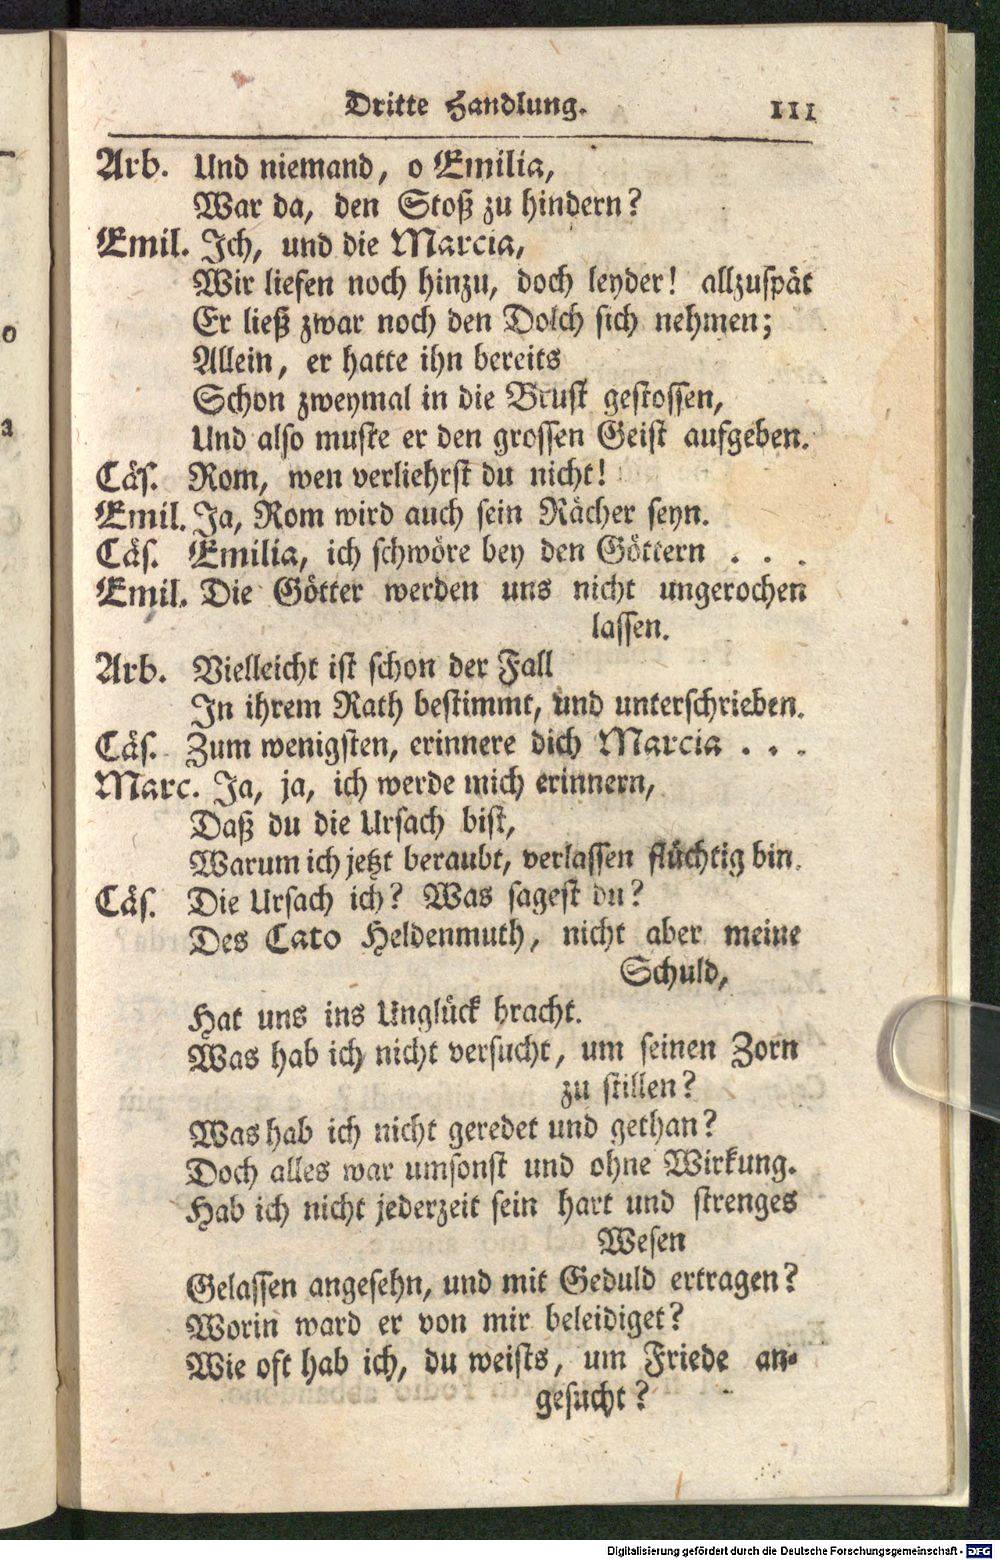 Dritte Handlung. 111
Arb. Und niemand, o Emilia,
War da, den Stoß zu hindern?
Emil. Ich, und die Marcia,
Wir liefen noch hinzu, doch leyder! allzuspät
Er ließ zwar noch den Dolch sich nehmen;
Allein, er hatte ihn bereits
Schon zweymal in die Brust gestossen,
Und also muste er den grossen Geist aufgeben.
Cäs. Rom, wen verliehrst du nicht!
Emil. Ja, Rom wird auch sein Rächer seyn.
Cäs. Emilia, ich schwöre bey den Göttern . . .
Emil. Die Götter werden uns nicht ungerochen
lassen.
Arb. Vielleicht ist schon der Fall
In ihrem Rath bestimmt, und unterschrieben.
Cäs. Zum wenigsten, erinnere dich Marcia . . .
Marc. Ja, ja, ich werde mich erinnern,
Daß du die Ursach bist,
Warum ich jetzt beraubt, verlassen flüchtig bin.
Cäs. Die Ursach ich? Was sagest du?
Des Cato Heldenmuth, nicht aber meine
Schuld,
Hat uns ins Unglück bracht.
Was hab ich nicht versucht, um seinen Zorn
zu stillen?
Was hab ich nicht geredet und gethan?
Doch alles war umsonst und ohne Wirkung.
Hab ich nicht jederzeit sein hart und strenges
Wesen
Gelassen angesehn, und mit Geduld ertragen?
Worin ward er von mir beleidiget?
Wie oft hab ich, du weists, um Friede an-
gesucht?
Digitalisierung gefördert durch die Deutsche Forschungsgemeinschaft - DFG